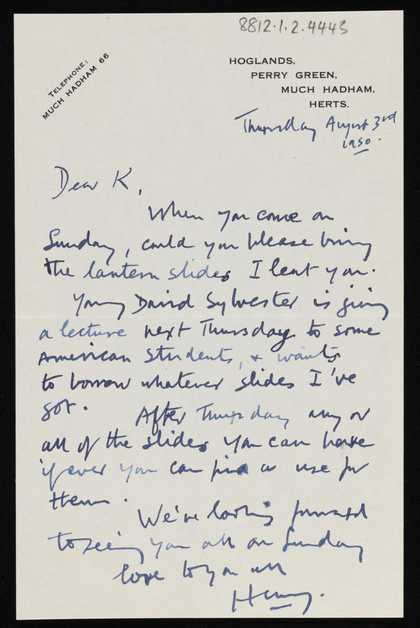 8812.1.2.4443
TELEPHONE:
MUCH HADHAM 66
HOGLANDS,
PERRY GREEN,
MUCH HADHAM,
HERTS.
Thursday August 3rd
1950.
Dear K,
When you come on
Sunday, could you please bring
the lantern slides I lent you.
Young David Sylvester is giving
a lecture next Thursday to some
American Students, + wants
to borrow whatever slides I've
got.
After Thursday any or
all of the slides you can have
if ever you can find a use for
them.
We're looking forward
to seeing you all on Sunday
love to you all
Henry.